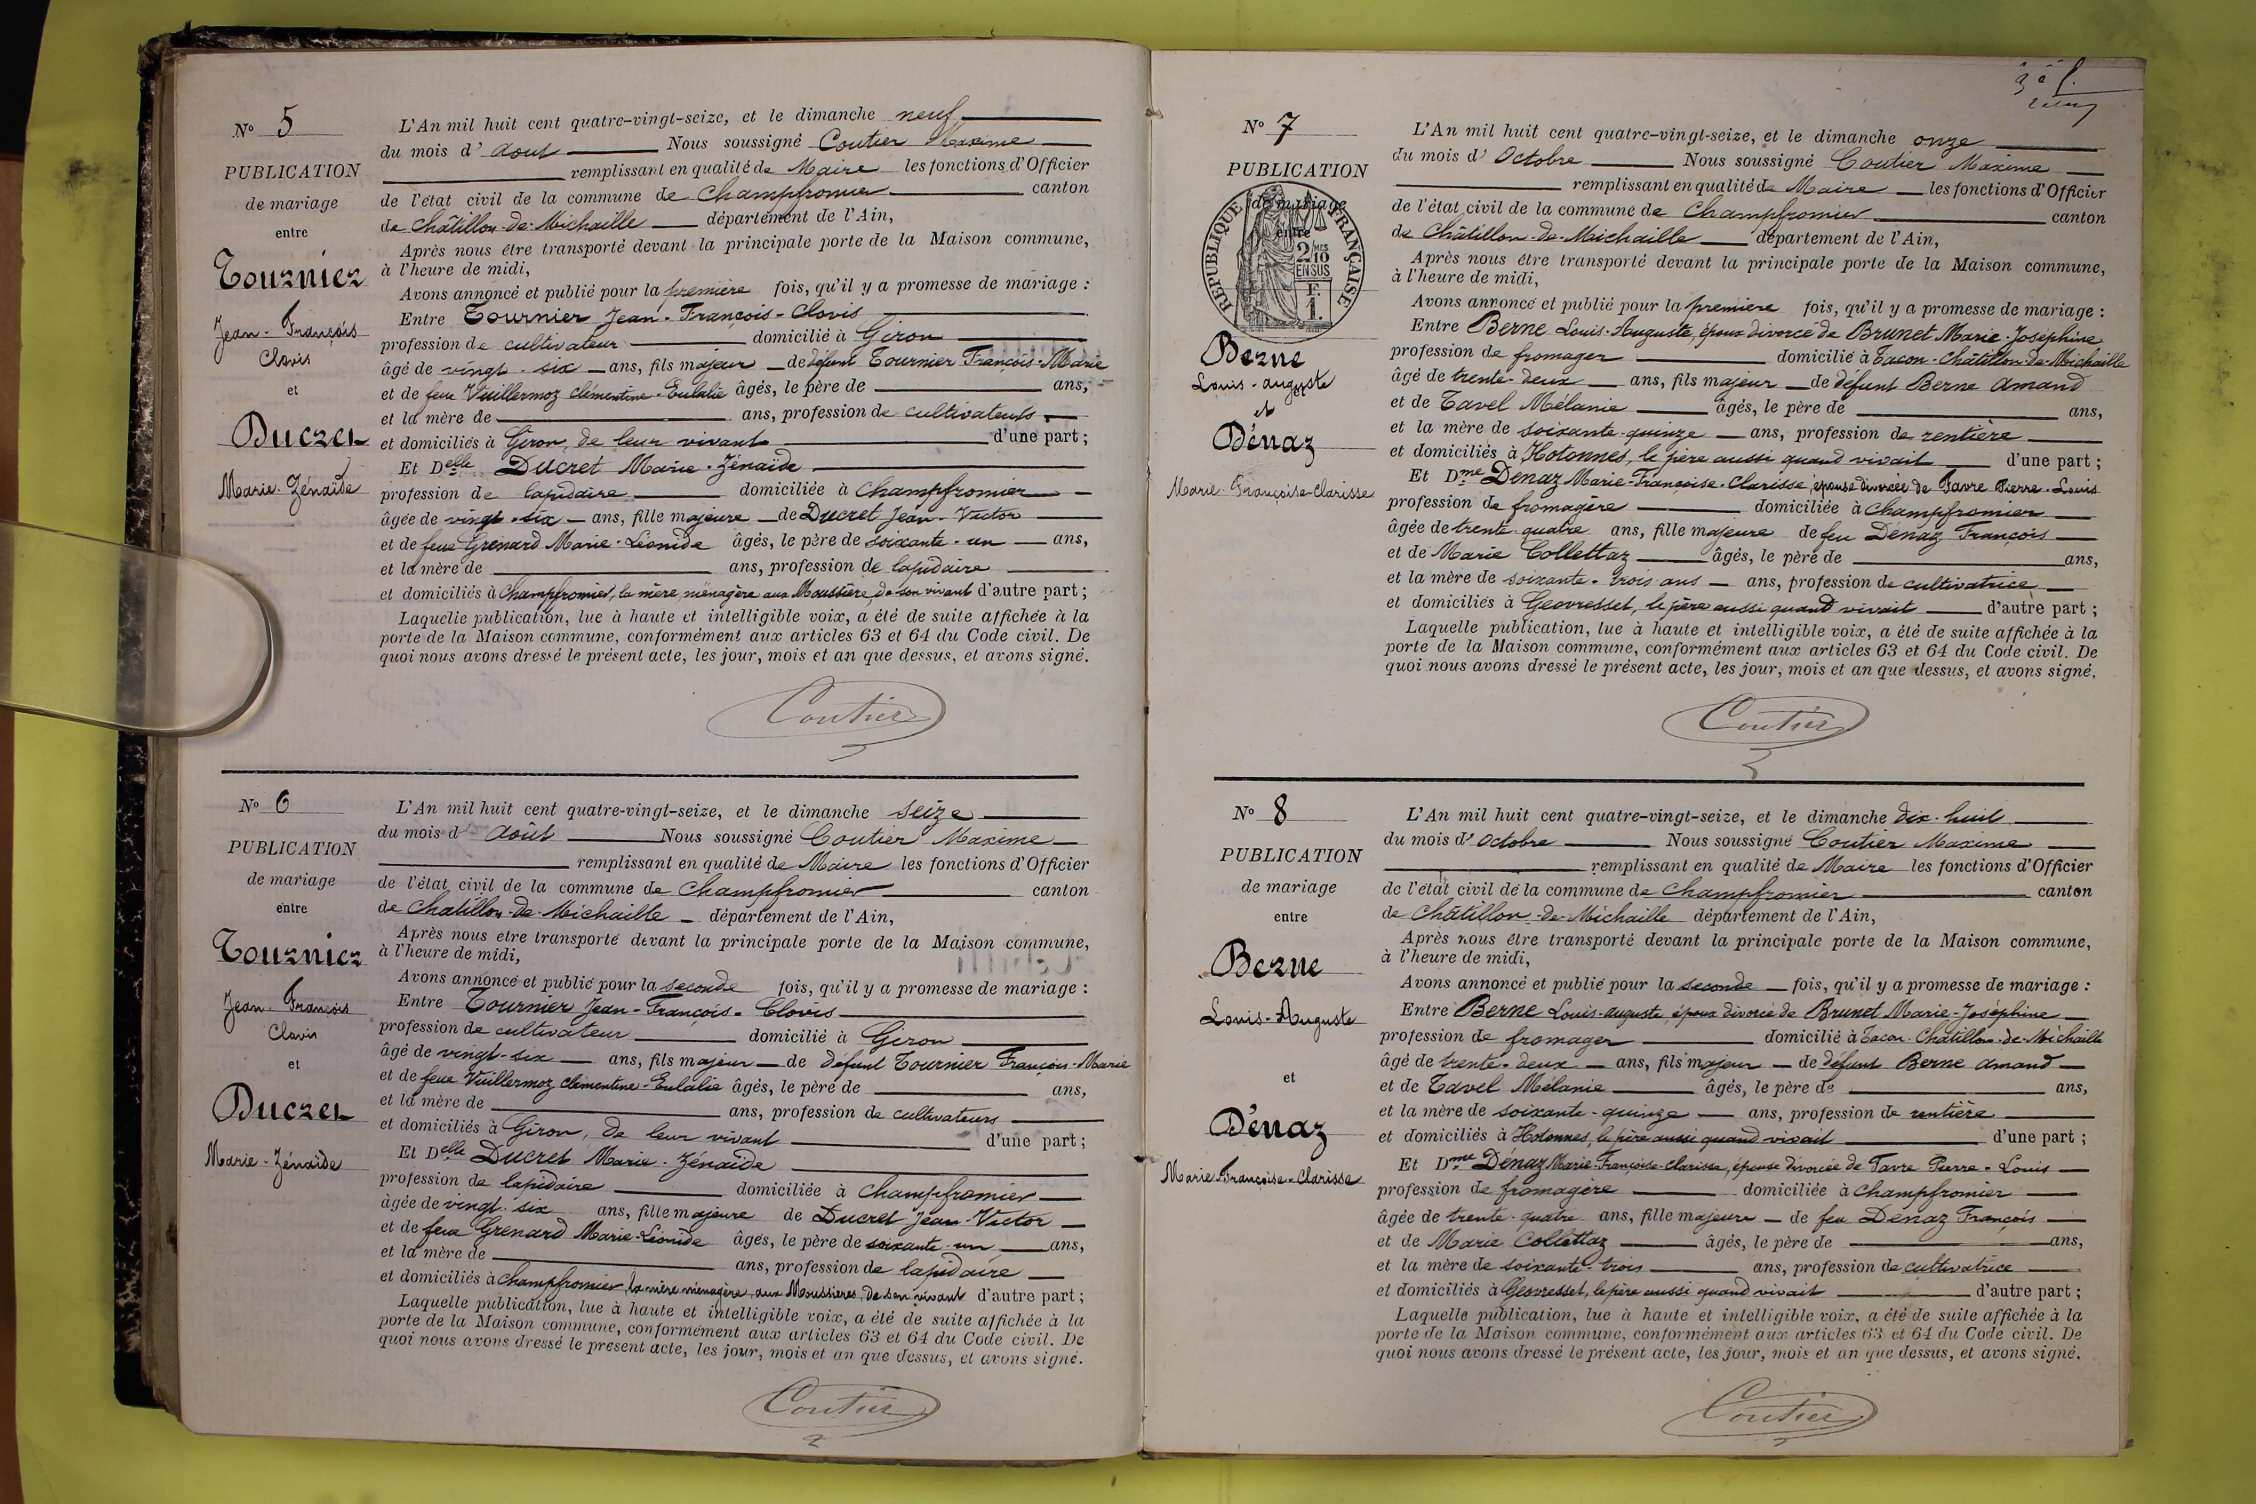 N° 5
PUBLICATION
de mariage
entre
Tournier
Jean-François
Clovis
et
Ducret
Marie-Zénaïde
L'An mil huit cent quatre-vingt-seize, et le dimanche neuf
du mois d' Aout Nous soussigné Coutier Maxime
remplissant en qualité de Maire les fonctions d'Officier
de l'état civil de la commune de Champfromier canton
de Châtillon-de-Michaille département de l'Ain,
Après nous être transporté devant la principale porte de la Maison commune,
à l'heure de midi,
Avons annoncé et publié pour la première fois, qu'il y a promesse de mariage :
Entre Tournier Jean-François-Clovis
profession de cultivateur domicilié à Giron
âgé de vingt-six ans, fils majeur de défunt Tournier François-Marie
et de feue Vuillermoz Clémentine-Eulalie âgés, le père de ans,
et la mère de ans, profession de cultivateurs
et domiciliés à Giron, de leur vivant d'une part ;
Et Delle Ducret Marie-Zénaïde
profession de lapidaire domiciliée à Champfromier
âgée de vingt-six ans, fille majeure de Ducret Jean-Victor
et de feue Grenard Marie-Léonide âgés, le père de soixante-un ans,
et la mère de ans, profession de lapidaire
et domiciliés à Champfromier, la mère, ménagère aux Moussière, de son vivant d'autre part ;
Laquelle publication, lue à haute et intelligible voix, a été de suite affichée à la
porte de la Maison commune, conformément aux articles 63 et 64 du Code civil. De
quoi nous avons dressé le présent acte, les jour, mois et an que dessus, et avons signé.
Coutier
N° 6
PUBLICATION
de mariage
entre
Tournier
Jean-François
Clovis
et
Ducret
Marie-Zénaïde
L'An mil huit cent quatre-vingt-seize, et le dimanche seize
du mois d' Août Nous soussigné Coutier Maxime
remplissant en qualité de Maire les fonctions d'Officier
de l'état civil de la commune de Champfromier canton
de Chatillon-de-Michaille département de l'Ain,
Après nous être transporté devant la principale porte de la Maison commune,
à l'heure de midi,
Avons annoncé et publié pour la seconde fois, qu'il y a promesse de mariage :
Entre Tournier Jean-François-Clovis
profession de cultivateur domicilié à Giron
âgé de vingt-six ans, fils majeur de défunt Tournier François-Marie
et de feue Vuillermoz Clémentine-Eulalie âgés, le père de ans,
et la mère de ans, profession de cultivateurs
et domiciliés à Giron, de leur vivant d'une part ;
Et Delle Ducret Marie-Zénaïde
profession de lapidaire domiciliée à Champfromier
âgée de vingt-six ans, fille majeure de Ducret Jean-Victor
et de feue Grenard Marie-Léonide âgés, le père de soixante-un ans,
et la mère de ans, profession de lapidaire
et domiciliés à Champfromier, la mère ménagère, aux Moussières, de son vivant d'autre part ;
Laquelle publication, lue à haute et intelligible voix, a été de suite affichée à la
porte de la Maison commune, conformément aux articles 63 et 64 du Code civil. De
quoi nous avons dressé le présent acte, les jour, mois et an que dessus, et avons signé.
Coutier
N° 7
PUBLICATION
de mariage
entre
RÉPUBLIQUE FRANÇAISE
2/10
EN SUS
F.
1.
Berne
Louis-Auguste
et
et
Dénaz
Marie-Françoise-Clarisse
L'An mil huit cent quatre-vingt-seize, et le dimanche onze
du mois d' Octobre Nous soussigné Coutier Maxime
remplissant en qualité de Maire les fonctions d'Officier
de l'état civil de la commune de Champfromier canton
de Châtillon-de-Michaille département de l'Ain,
Après nous être transporté devant la principale porte de la Maison commune,
à l'heure de midi,
Avons annoncé et publié pour la première fois, qu'il y a promesse de mariage :
Entre Berne Louis-Auguste, époux divorcé de Brunet Marie-Joséphine
profession de fromager domicilié à Tacon-Châtillon-de-Michaille
âgé de trente-deux ans, fils majeur de défunt Berne Amand
et de Tavel Mélanie âgés, le père de ans,
et la mère de soixante-quinze ans, profession de rentière
et domiciliés à Hotonnes, le père aussi quand vivait d'une part ;
Et Dme Dénaz Marie-Françoise-Clarisse, épouse divorcée de Favre Pierre-Louis
profession de fromagère domiciliée à Champfromier
âgée de trente-quatre ans, fille majeure de feu Dénaz François
et de Marie Collettaz âgés, le père de ans,
et la mère de soixante-trois ans ans, profession de cultivatrice
et domiciliés à Geovresset, le père aussi quand vivait d'autre part ;
Laquelle publication, lue à haute et intelligible voix, a été de suite affichée à la
porte de la Maison commune, conformément aux articles 63 et 64 du Code civil. De
quoi nous avons dressé le présent acte, les jour, mois et an que dessus, et avons signé.
Coutier
N° 8
PUBLICATION
de mariage
entre
Berne
Louis-Auguste
et
Dénaz
Marie-Françoise-Clarisse
L'An mil huit cent quatre-vingt-seize, et le dimanche dix-huit
du mois d' Octobre Nous soussigné Coutier Maxime
remplissant en qualité de Maire les fonctions d'Officier
de l'état civil de la commune de Champfromier canton
de Châtillon-de-Michaille département de l'Ain,
Après nous être transporté devant la principale porte de la Maison commune,
à l'heure de midi,
Avons annoncé et publié pour la seconde fois, qu'il y a promesse de mariage :
Entre Berne Louis-Auguste, époux divorcé de Brunet Marie-Joséphine
profession de fromager domicilié à Tacon-Châtillon-de-Michaille
âgé de trente-deux ans, fils majeur de défunt Berne Amand
et de Tavel Mélanie âgés, le père de ans,
et la mère de soixante-quinze ans, profession de rentière
et domiciliés à Hotonnes, le père aussi quand vivait d'une part ;
Et Dme Dénaz Marie-Françoise-Clarisse, épouse divorcée de Favre Pierre-Louis
profession de fromagère domiciliée à Champfromier
âgée de trente-quatre ans, fille majeure de feu Dénaz François
et de Marie Collettaz âgés, le père de ans,
et la mère de soixante-trois ans, profession de cultivatrice
et domiciliés à Geovresset, le père aussi quand vivait d'autre part ;
Laquelle publication, lue à haute et intelligible voix, a été de suite affichée à la
porte de la Maison commune, conformément aux articles 63 et 64 du Code civil. De
quoi nous avons dressé le présent acte, les jour, mois et an que dessus, et avons signé.
Coutier